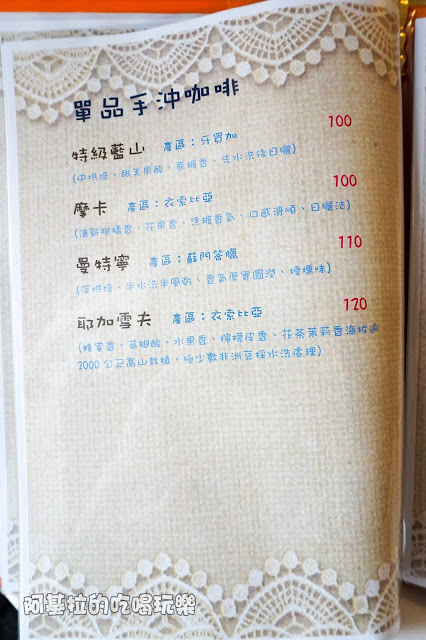 單品手沖咖啡
特級藍山 產區：牙買加 100
(中烘培、甜美果酸、蔗糖香、先水洗後日曬)
摩卡 產區：衣索比亞 100
(清新柑橘香、花果香、焦糖香氣、口感滑順、日曬法)
曼特寧 產區：蘇門答臘 110
(深烘培、半水洗半風乾、香氣厚實圓潤、煙燻味)
耶加雪夫 產區：衣索比亞 120
(蜂蜜香、葡萄酸、水果香、檸檬皮香、花茶茉莉香海拔逾
2000公尺高山栽植，極少數非洲豆採水洗處理)
阿基拉的吃喝玩樂